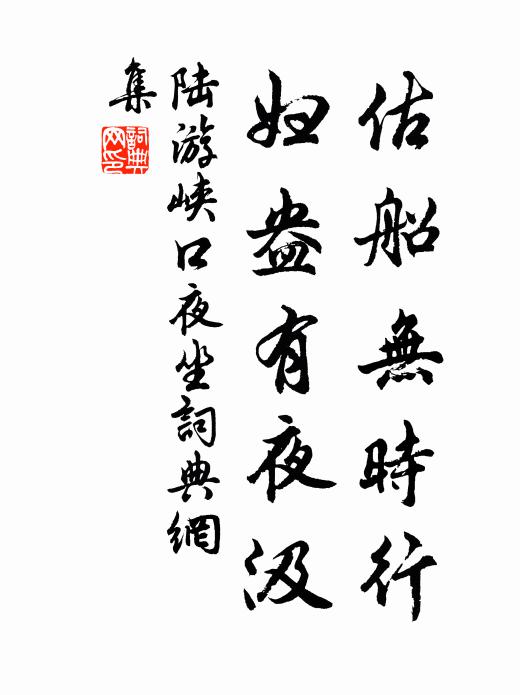 估船無時行
婦盎有夜汲
陸游峽口夜坐詞典網
集
詞典網印